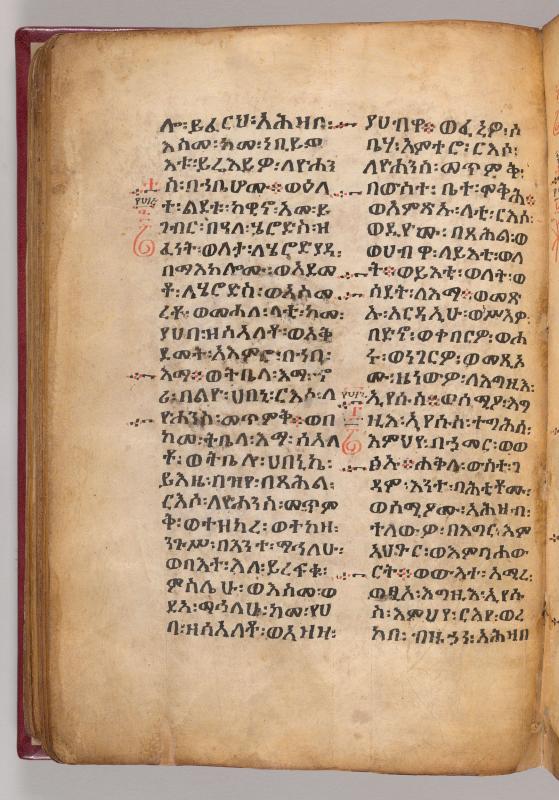 ሎ፡ይፈርህ፡እሕዛብ፡
እስመ፡ከመ፡ነቢይ፡ው
እቱ፡ይሬእይዎ፡ለዮሐን
ስ፡በኀቤሆሙ፨ወዕለ
ት፡ልደቱ፡ከዊኖ፡እመ፡ይ
ገብር፡በዓለ፡ሄሮድስ፡ዘ
ፈነት፡ወለታ፡ለሄሮድያዳ፡
በማእከሎሙ፡ወአደመ
ቶ፡ለሄሮድስ፡ወእስመ፡
ረቆ፡ወመሐለ፡ላቲ፡ከመ፡
የሀብ፡ዘሰአለቶ፡ወአቅ
ደመት፡አእምሮ፡በኀበ፡
እማ፨ወትቤላ፡እማ፡ኦ
ሪ፡በልዮ፡ሀበኒ፡ርእሶ፡ለ
ዮሐንስ፡መጥምቅ፨ወበ
ከመ፡ትቤላ፡እማ፡ሰአለ
ቶ፡ወትቤሎ፡ሀበኒኬ፡
ይእዜ፡በዝየ፡በጻሕል፡
ርእሶ፡ለዮሐንስ፡መጥም
ቅ፡ወተዘከረ፡ወተከዘ፡
ንጉሥ፡በእንተ፡ማኅላሁ፡
ወበእት፡እለ፡ይረፍቁ፡
ምስሌሁ፡ወእስመ፡ወ
ደአ፡ማኅላሁ፡ከመ፡የሀ
ባ፡ዘሰአለቶ፡ወአዘዘ፡
ያሀብዋ፨ወፈነዎ፡ሶ
ቤሃ፡እምትሮ፡ርእሶ፡
ለዮሐንስ፡መጥምቅ፡
በውስተ፡ቤተ፡ሞቅሕ፨
ወአምጽኡ፡ላቲ፡ርእሶ፡
ወደዮሙ፡በጻሕል፡ወ
ወሀብዋ፡ለይእቲ፡ወለ
ት፨ወይእቲ፡ወለት፡ወ
ሰደት፡ለእማ፨ወመጽ
ኡ፡አርዳኢሁ፡ወሥእዎ፡
በድኖ፡ወቀበርዎ፡ወሐ
ሩ፡ወነገርዎ፡ወመጺኦ
ሙ፡ዜነውዎ፡ለእግዚእ፡
ኢየሱስ፨ወሰሚዖ፡እግ
ዚእ፡ኢየሱስ፡ተግሕሰ፡
እምህየ፡በኃመር፡ወወ
ፅአ፨ሐቅለ፡ውስተ፡ገ
ዳም፡እንተ፡ባሕቲቶሙ፡
ወሰሚዖሙ፡አሕዛብ፡
ተለውዎ፡በእግር፡እም
አህጉር፡ወእምባሐው
ርት፨ወውእተ፡አሚረ፡
ወፂኦ፡እግዚእ፡ኢየሱ
ስ፡እምህየ፡ርእየ፡ወረ
ከበ፡ብዙኃነ፡አሕዛበ